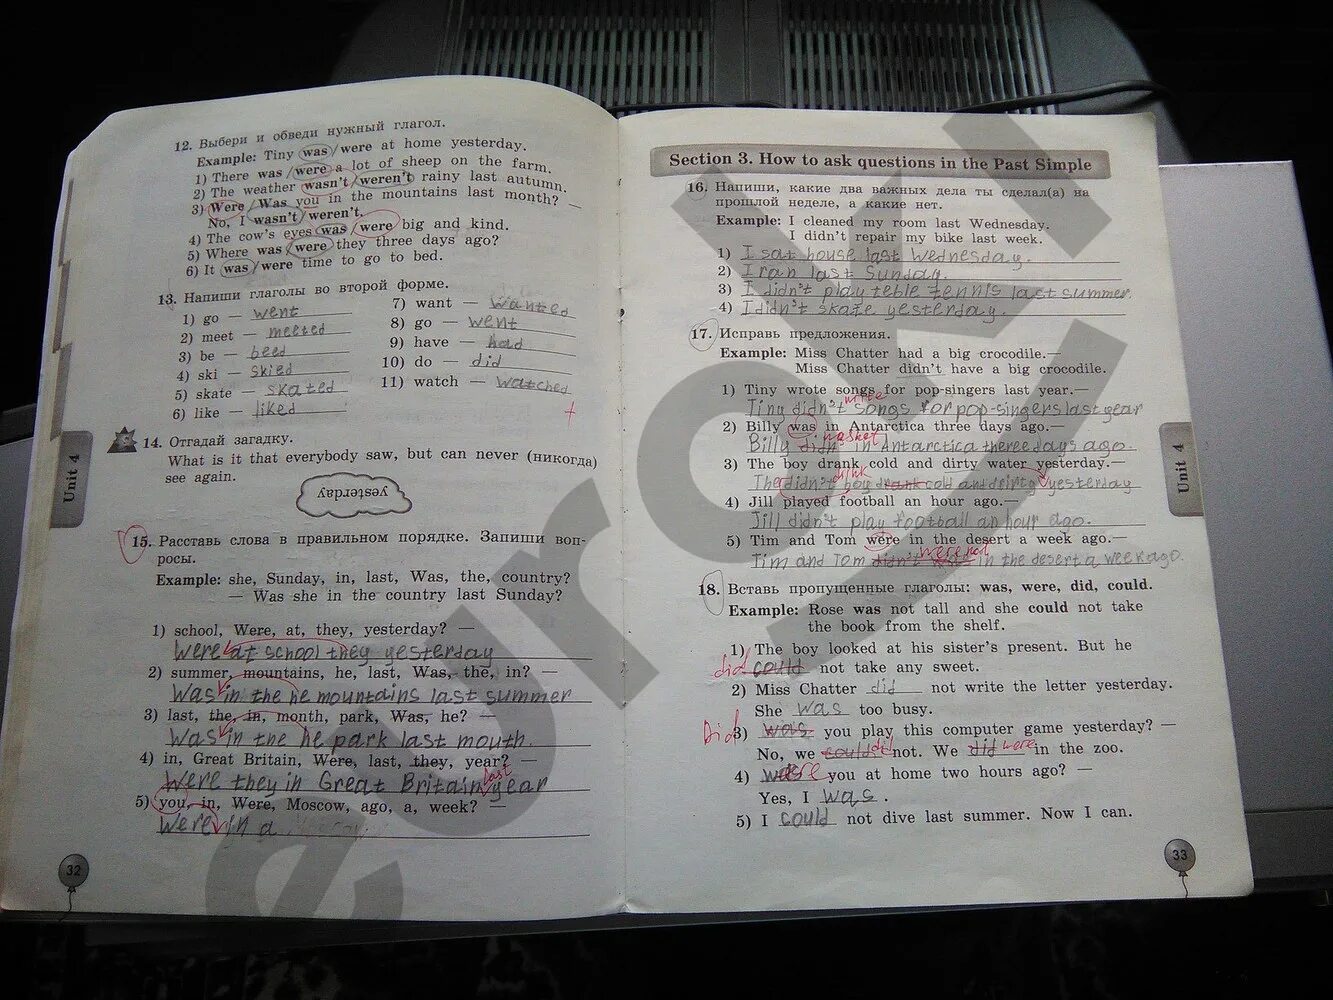 12. Выбери и обведи нужный глагол.
Example: Tiny was / were at home yesterday.
1) There was / were a lot of sheep on the farm.
2) The weather wasn't / weren't rainy last autumn.
3) Were / Was you in the mountains last month? —
No, I wasn't / weren't.
4) The cow's eyes was / were big and kind.
5) Where was / were they three days ago?
6) It was / were time to go to bed.
13. Напиши глаголы во второй форме.
1) go — went
2) meet — meeted
3) be — beed
4) ski — skied
5) skate — skated
6) like — liked
7) want — wanted
8) go — went
9) have — had
10) do — did
11) watch — watched
14. Отгадай загадку.
What is it that everybody saw, but can never (никогда)
see again.
yesterday
15. Расставь слова в правильном порядке. Запиши воп-
росы.
Example: she, Sunday, in, last, Was, the, country?
— Was she in the country last Sunday?
1) school, Were, at, they, yesterday? —
Were at school they yesterday
2) summer, mountains, he, last, Was, the, in? —
Was in the he mountains last summer
3) last, the, in, month, park, Was, he? —
Was in the he park last mouth.
4) in, Great Britain, Were, last, they, year? —
Were they in Great Britain last year
5) you, in, Were, Moscow, ago, a, week? —
Were in a
Unit 4
32
Section 3. How to ask questions in the Past Simple
16. Напиши, какие два важных дела ты сделал(а) на
прошлой неделе, а какие нет.
Example: I cleaned my room last Wednesday.
I didn't repair my bike last week.
1) I sat house last Wednesday.
2) I ran last Sunday.
3) I didn't play teble tennis last summer.
4) I didn't skate yesterday.
17. Исправь предложения.
Example: Miss Chatter had a big crocodile.—
Miss Chatter didn't have a big crocodile.
1) Tiny wrote songs for pop-singers last year.—
Tiny didn't write songs for pop-singers last year
2) Billy was in Antarctica three days ago.—
Billy didn't was not in Antarctica three days ago.
3) The boy drank cold and dirty water yesterday.—
The didn't boy drank drink cold and dirty yesterday
4) Jill played football an hour ago.—
Jill didn't play football an hour ago.
5) Tim and Tom were in the desert a week ago.—
Tim and Tom didn't were not in the desert a week ago.
18. Вставь пропущенные глаголы: was, were, did, could.
Example: Rose was not tall and she could not take
the book from the shelf.
1) The boy looked at his sister's present. But he
did could not take any sweet.
2) Miss Chatter did not write the letter yesterday.
She was too busy.
Did 3) was you play this computer game yesterday? —
No, we could did not. We did were in the zoo.
4) were you at home two hours ago? —
Yes, I was.
5) I could not dive last summer. Now I can.
Unit 4
33
euroki